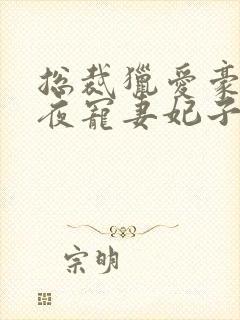 总裁猎爱豪
夜宠妻妃子
宗明